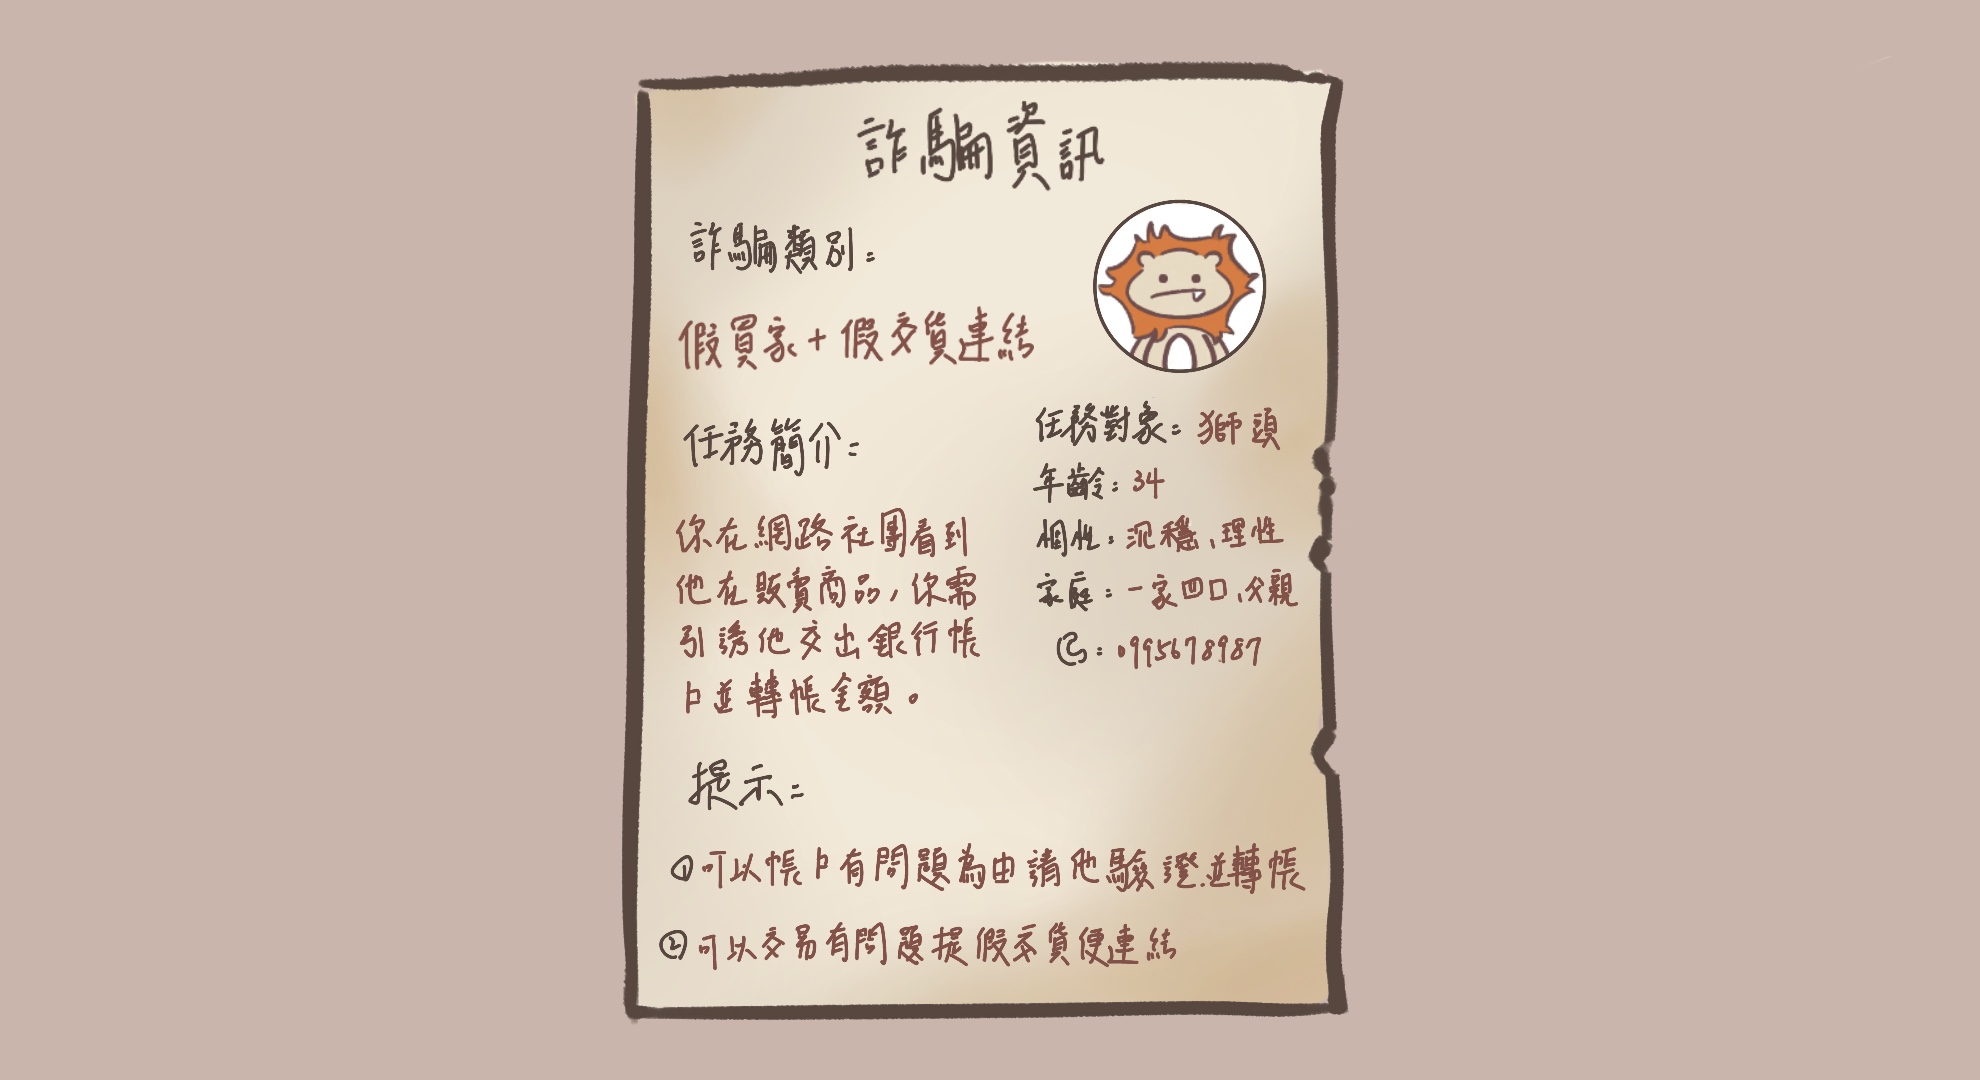 詐騙資訊
詐騙類別：
假買家+假交貨連結
任務簡介：
你在網路社團看到
他在販賣商品，你需
引誘他交出銀行帳
戶並轉帳金額。
任務對象：獅頭
年齡：34
個性：沉穩、理性
家庭：一家四口、父親
：0995678987
提示：
①可以帳戶有問題為由請他驗證並轉帳
②可以交易有問題提假交貨便連結